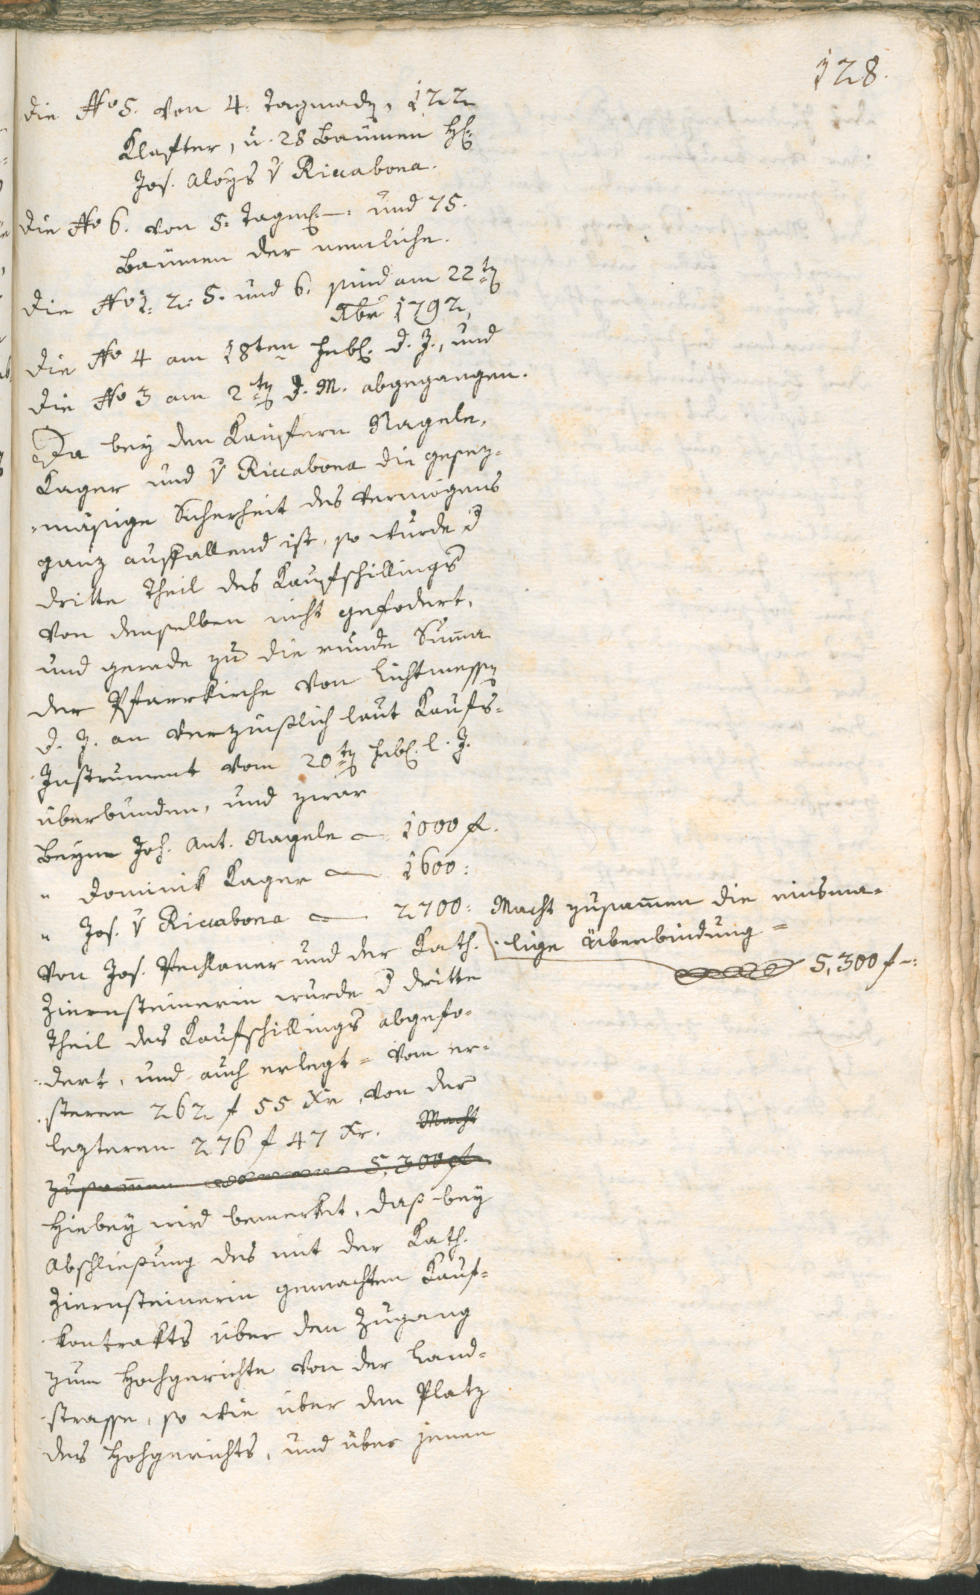 128.
die No 5. von 4. Tagmad, 122
Klafter, u. 28 Bäumen H:
Jos. Aloys v Riccabona.
Die No 6. von 5. Tagm: — und 75.
Bäumen der nemliche.
Die No 1: 2: 5. und 6. sind am 22ten
Xbr 1792,
die No 4 am 18ten d. J., und
die No 3 am 2ten d. M. abgegangen.
Da bey den Käufern Nagele,
Kager und v Riccabona die gesez-
mäßige Sicherheit des Vermögens
ganz auffallend ist, so wurde d
dritte Theil des Kaufschillings
von denselben nicht gefodert,
und gerade zu die runde Summa
der Pfarrkirche von Lichtmessen
d. J. an verzinslich laut Kaufs-
Instrument vom 20ten l. J.
überbunden, und zwar
Beym Joh. Ant. Nagele — 1000 f.
" Dominik Kager — 1600:
" Jos. v Riccabona — 2700: Macht zusammen die einsma-
lige Überbindung =
5,300 f —:
Von Jos. Pechlaner und der Kath.
Ziernsteinerin wurde d dritte
Theil des Kaufschillings abgefo-
dert, und auch erlegt = vom er-
steren 262 f 55 Xr, von der
lezteren 276 f 47 Xr. Macht
zusammen 5,300 f
Hiebey wird bemerket, daß bey
Abschließung des mit der Kath.
Ziernsteinerin gemachten Kauf-
kontrakts über den Zugang
zum Hochgerichte von der Land-
strasse, so wie über den Platz
des Hochgerichts, und über jenen